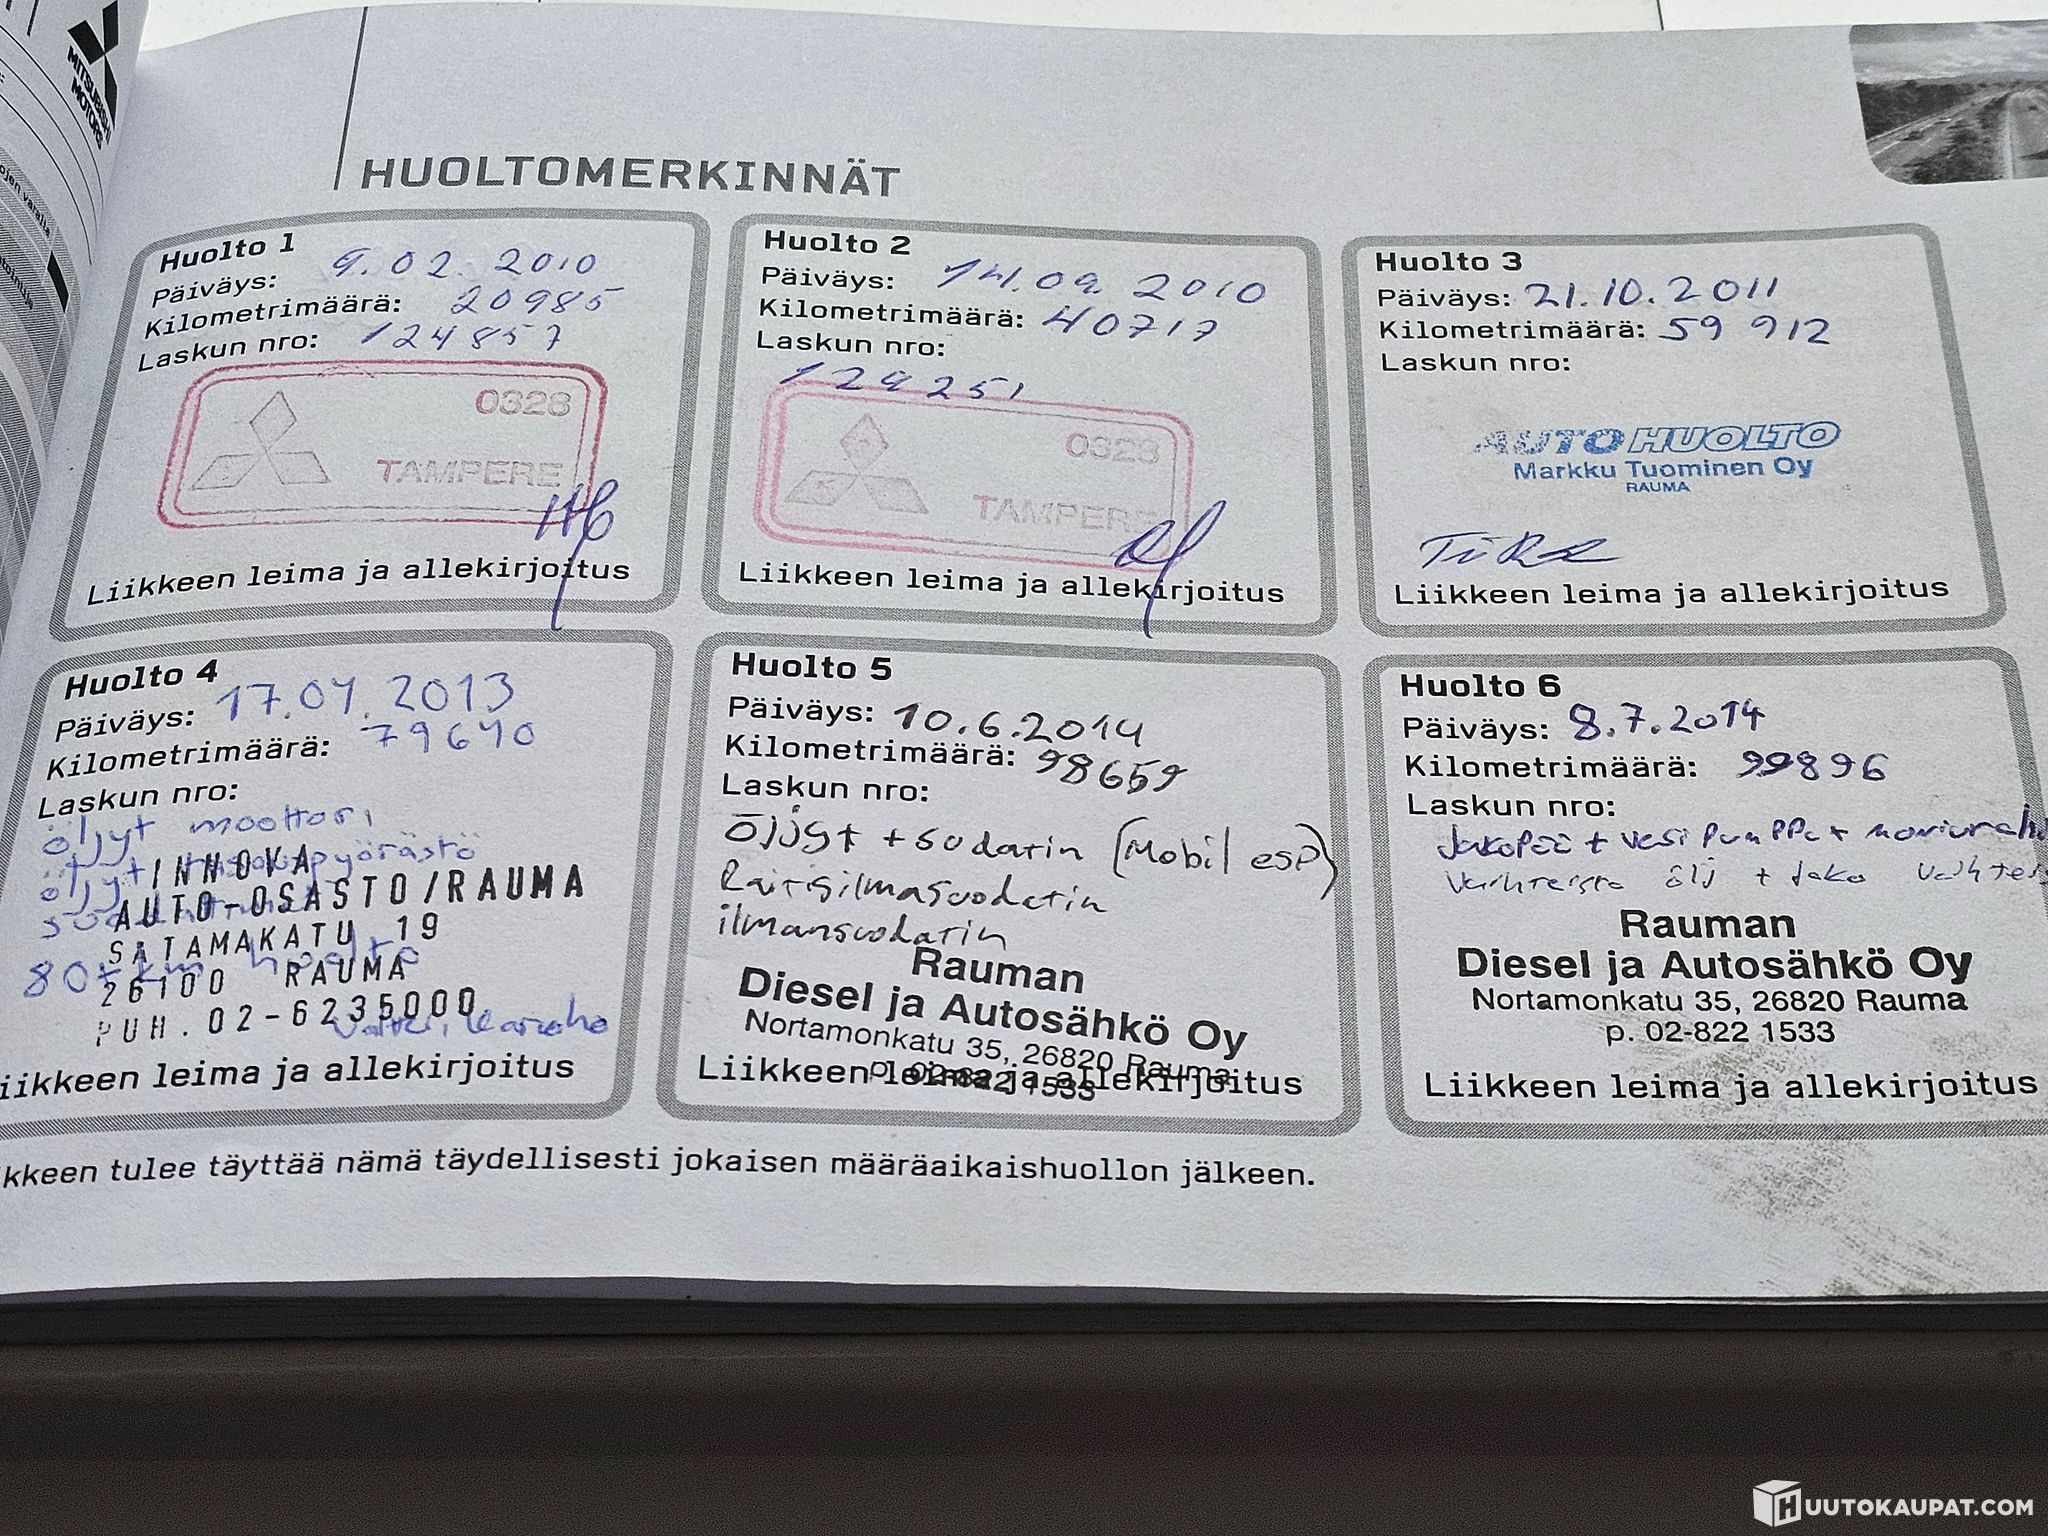 MITSUBISHI
MOTORS
HUOLTOMERKINNÄT
Huolto 1
Päiväys: 9.02.2010
Kilometrimäärä: 20985
Laskun nro: 124857
0328
TAMPERE
Liikkeen leima ja allekirjoitus
Huolto 2
Päiväys: 14.09.2010
Kilometrimäärä: 40717
Laskun nro:
129251
0328
TAMPERE
Liikkeen leima ja allekirjoitus
Huolto 3
Päiväys: 21.10.2011
Kilometrimäärä: 59 912
Laskun nro:
AUTOHUOLTO
Markku Tuominen Oy
RAUMA
Liikkeen leima ja allekirjoitus
Huolto 4
Päiväys: 17.04.2013
Kilometrimäärä: 79640
Laskun nro:
öljyt moottori
öljyt
INNOVA
AUTO-OSASTO/RAUMA
SATAMAKATU 19
26100 RAUMA
PUH.02-6235000
iikkeen leima ja allekirjoitus
Huolto 5
Päiväys: 10.6.2014
Kilometrimäärä: 98659
Laskun nro:
Öljyt + suodatin (Mobil esp)
Raitisilmasuodatin
ilmansuodatin
Rauman
Diesel ja Autosähkö Oy
Nortamonkatu 35, 26820 Rauma
p. 02-822 1533
Liikkeen leima ja allekirjoitus
Huolto 6
Päiväys: 8.7.2014
Kilometrimäärä: 99896
Laskun nro:
Jakopää + vesipumppu +
Vaihteisto ölj + Jako
Rauman
Diesel ja Autosähkö Oy
Nortamonkatu 35, 26820 Rauma
p. 02-822 1533
Liikkeen leima ja allekirjoitus
kkeen tulee täyttää nämä täydellisesti jokaisen määräaikaishuollon jälkeen.
HUUTOKAUPAT.COM